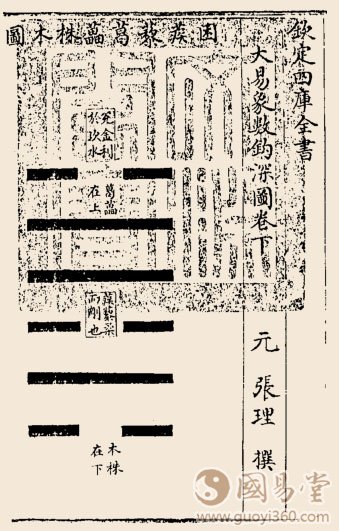 欽定四庫全書
大易象數鉤深圖卷下
元 張理 撰
困蒺藜葛藟株木圖
葛藟
在上
蒺藜柔
而剛也
株木
在下
國易堂
www.guoyi360.com